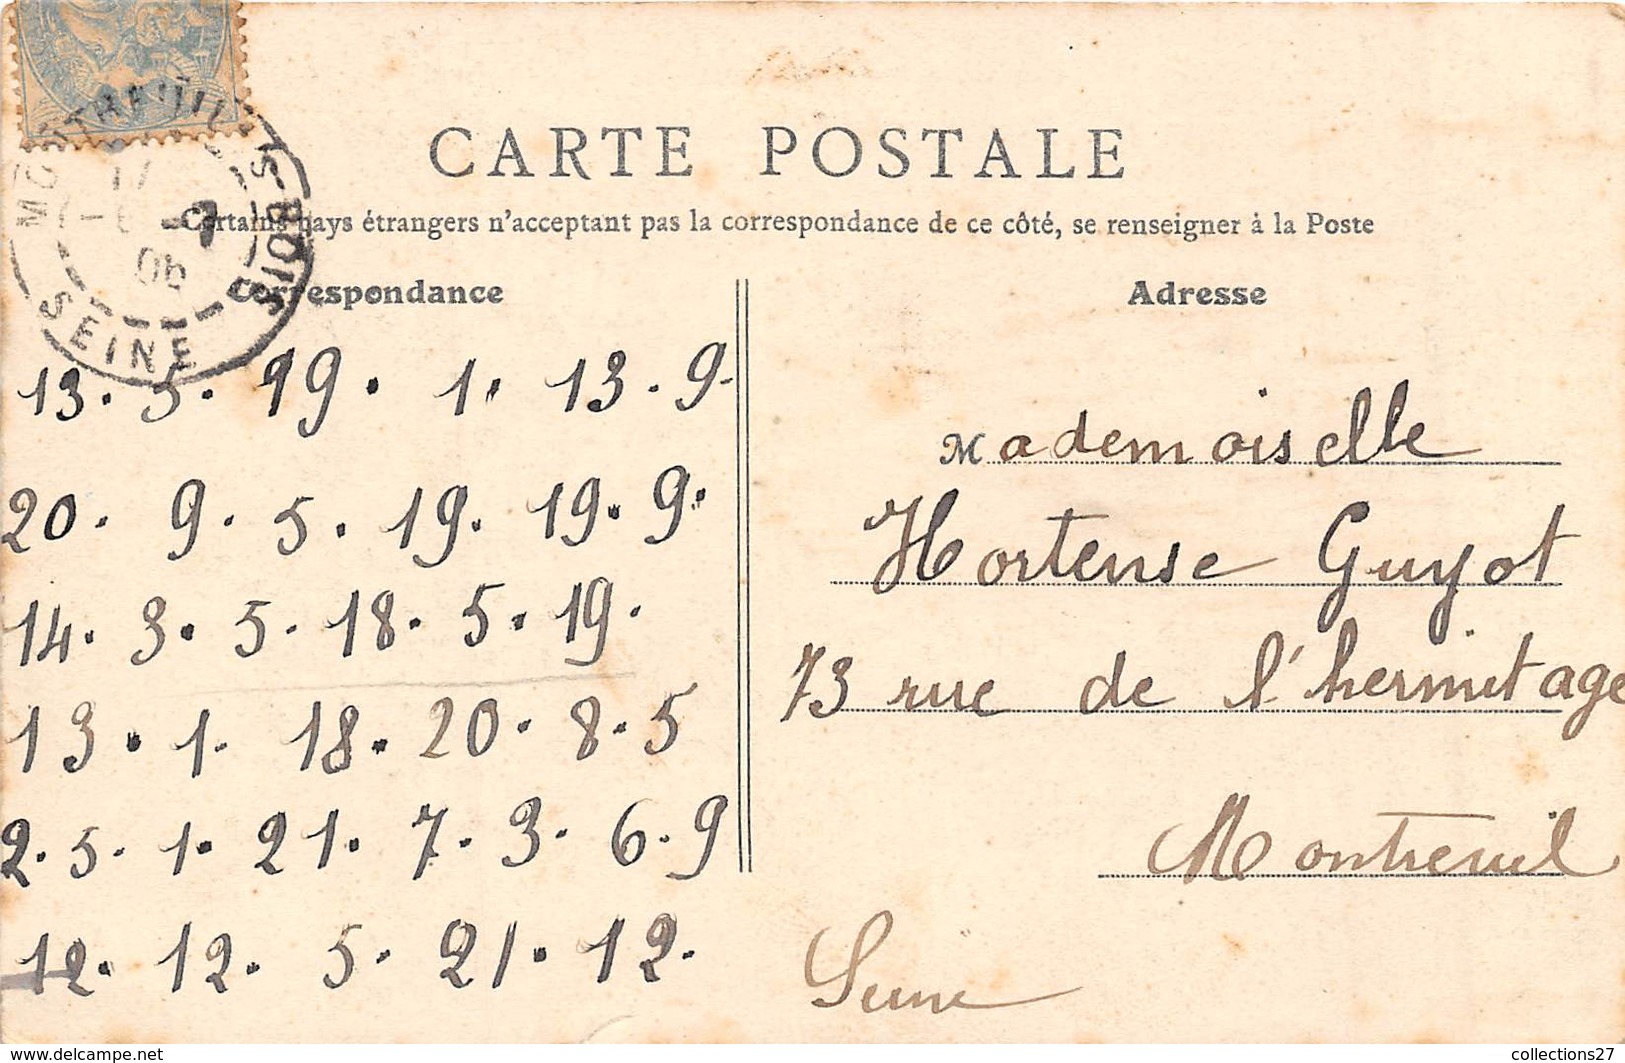 CARTE POSTALE
Certains pays étrangers n'acceptant pas la correspondance de ce côté, se renseigner à la Poste
Correspondance
SEINE
13. 5. 19. 1. 13. 9.
20. 9. 5. 19. 19. 9.
14. 3. 5. 18. 5. 19.
13. 1. 18. 20. 8. 5
2. 5. 1. 21. 7. 3. 6. 9
12. 12. 5. 21. 12.
Adresse
Mademoiselle
Hortense Guyot
73 rue de l'hermitage
Montreuil
Seine
www.delcampe.net
collections27